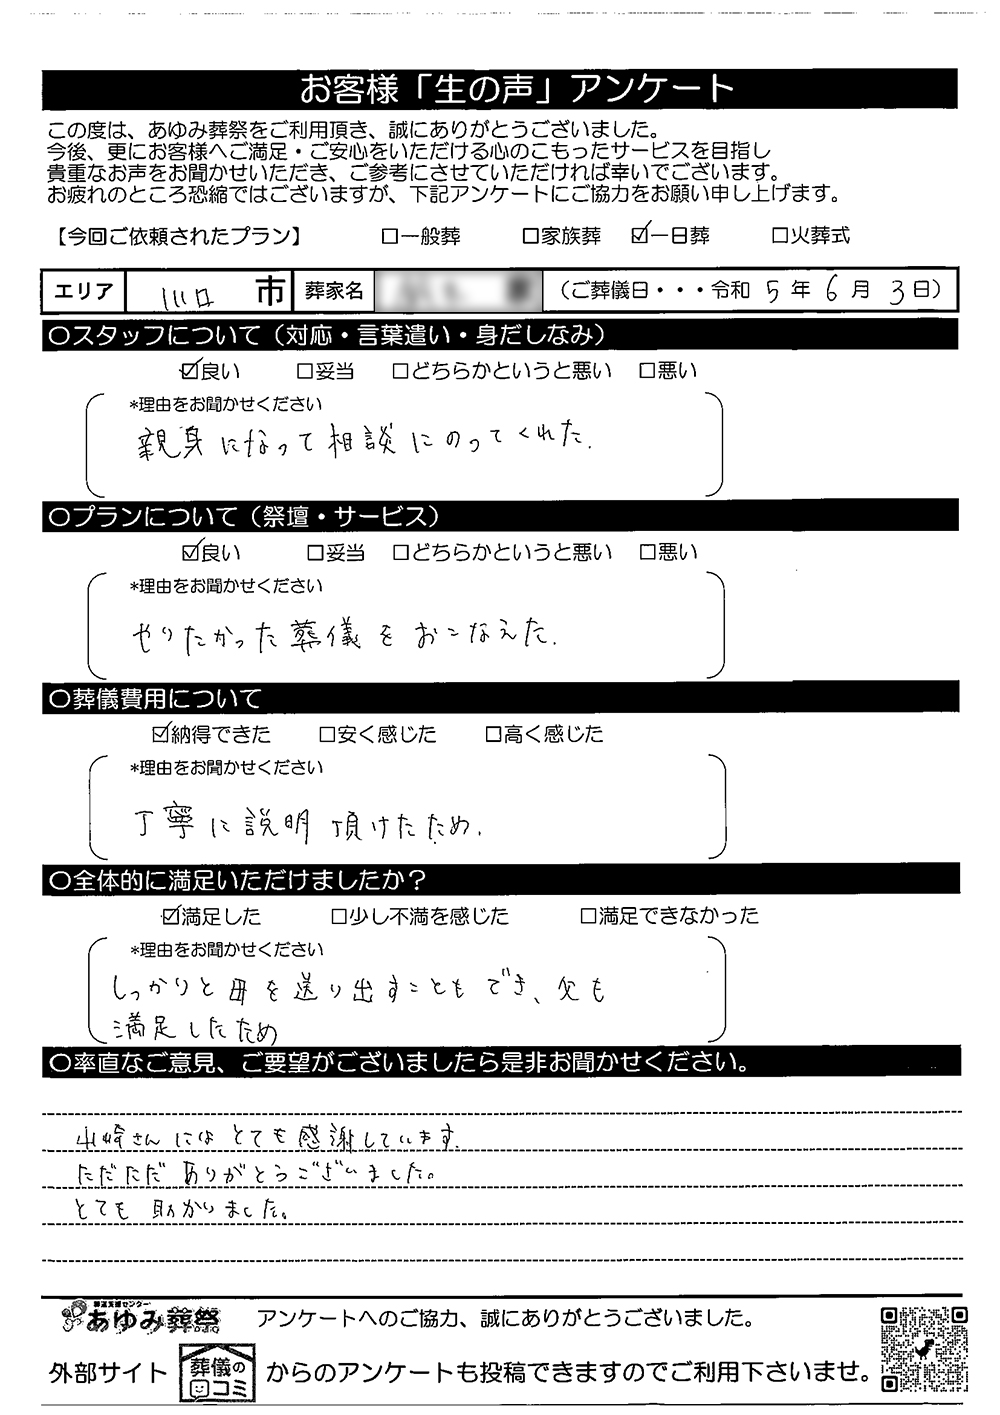 お客様「生の声」アンケート
この度は、あゆみ葬祭をご利用頂き、誠にありがとうございました。
今後、更にお客様へご満足・ご安心をいただける心のこもったサービスを目指し
貴重なお声をお聞かせいただき、ご参考にさせていただければ幸いでございます。
お疲れのところ恐縮ではございますが、下記アンケートにご協力をお願い申し上げます。
【今回ご依頼されたプラン】 □一般葬 □家族葬 ☑一日葬 □火葬式
エリア 川口 市 葬家名 (ご葬儀日・・・令和 5 年 6 月 3 日)
○スタッフについて(対応・言葉遣い・身だしなみ)
☑良い □妥当 □どちらかというと悪い □悪い
*理由をお聞かせください
親身になって相談にのってくれた.
○プランについて(祭壇・サービス)
☑良い □妥当 □どちらかというと悪い □悪い
*理由をお聞かせください
やりたかった葬儀をおこなえた.
○葬儀費用について
☑納得できた □安く感じた □高く感じた
*理由をお聞かせください
丁寧に説明頂けたため.
○全体的に満足いただけましたか?
☑満足した □少し不満を感じた □満足できなかった
*理由をお聞かせください
しっかりと母を送り出すこともでき、父も
満足したため
○率直なご意見、ご要望がございましたら是非お聞かせください。
山崎さんにはとても感謝しています.
ただただありがとうございました。
とても助かりました。
葬送支援センター
あゆみ葬祭 アンケートへのご協力、誠にありがとうございました。
外部サイト 葬儀の口コミ からのアンケートも投稿できますのでご利用下さいませ。